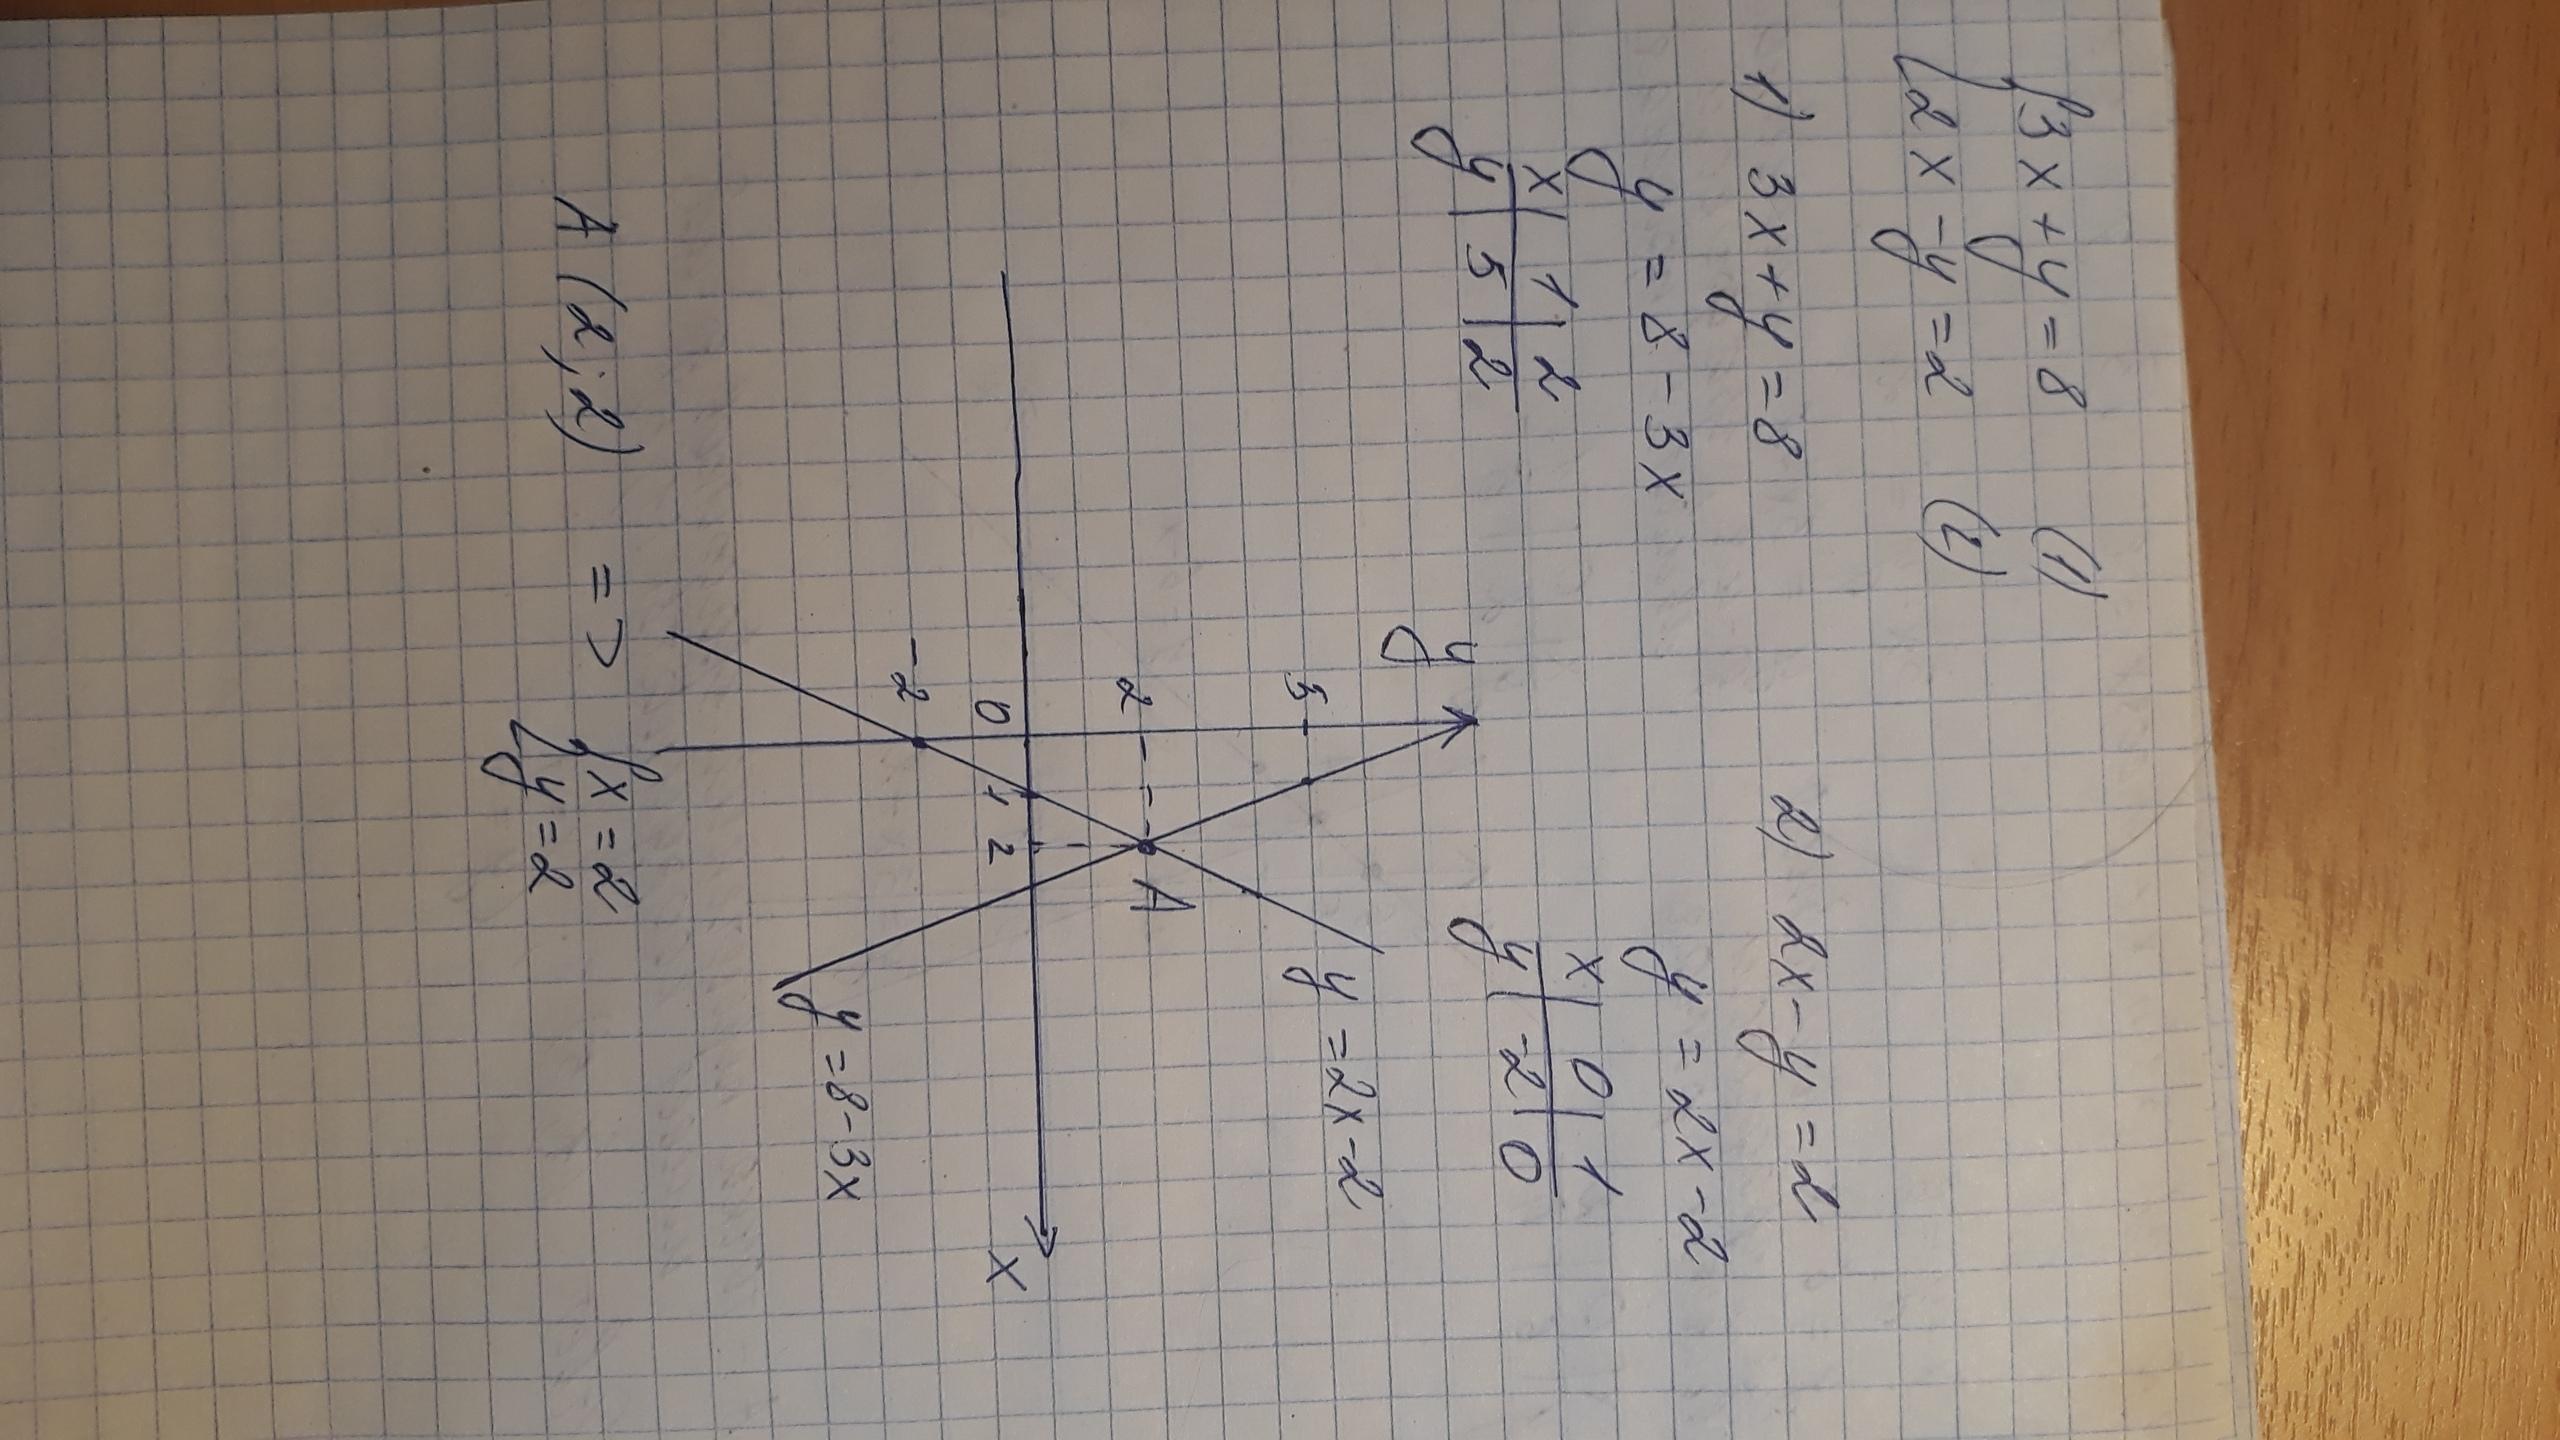 {3x+y=8 (1)
{2x-y=2 (2)
1) 3x+y=8
y=8-3x
x | 1 | 2
y | 5 | 2
2) 2x-y=2
y=2x-2
x | 0 | 1
y | -2 | 0
y
5
2
0
-2
1 2
x
A
y=2x-2
y=8-3x
A(2;2) => {x=2
{y=2